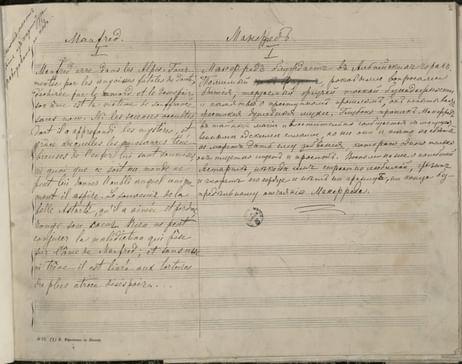 Manfred.
I
Manfred erre dans les Alpes. Tour-
menté par les angoisses fatales du doute,
déchiré par le remords et le désespoir,
son âme est la victime de souffrances
sans nom. Ni les sciences occultes,
dont il a approfondi les mystères, et
grâce auxquelles les puissances téné-
breuses de l'enfer lui sont soumises,
ni quoi que ce soit au monde ne
peut lui donner l'oubli auquel uniquement
il aspire. Le souvenir de la
belle Astarté, qu'il a aimée et perdue,
ronge son coeur. Rien ne peut
conjurer la malédiction qui pèse
sur l'âme de Manfred; et sans cesse
ni trève il est livré aux tortures
du plus atroce désespoir...
Манфредъ
I
Манфредъ блуждаетъ въ Альпійскихъ горахъ.
Томимый роковыми вопросами
бытія, терзаемый жгучей тоской безнадежности
и памятью о преступномъ прошломъ, онъ испытываетъ
жестокія душевныя муки. Глубоко проникъ Манфредъ
въ тайны магіи и властительно сообщается съ могуще-
ственными адскими силами, но ни они и ничто на свѣтѣ
не можетъ дать ему забвенія, котораго одного только
онъ тщетно ищетъ и проситъ. Воспоминаніе о погибшей
Астартѣ, нѣкогда имъ страстно любимой, грызетъ
и гложетъ его сердце и нѣтъ ни границъ, ни конца без-
предѣльному отчаянію Манфреда.